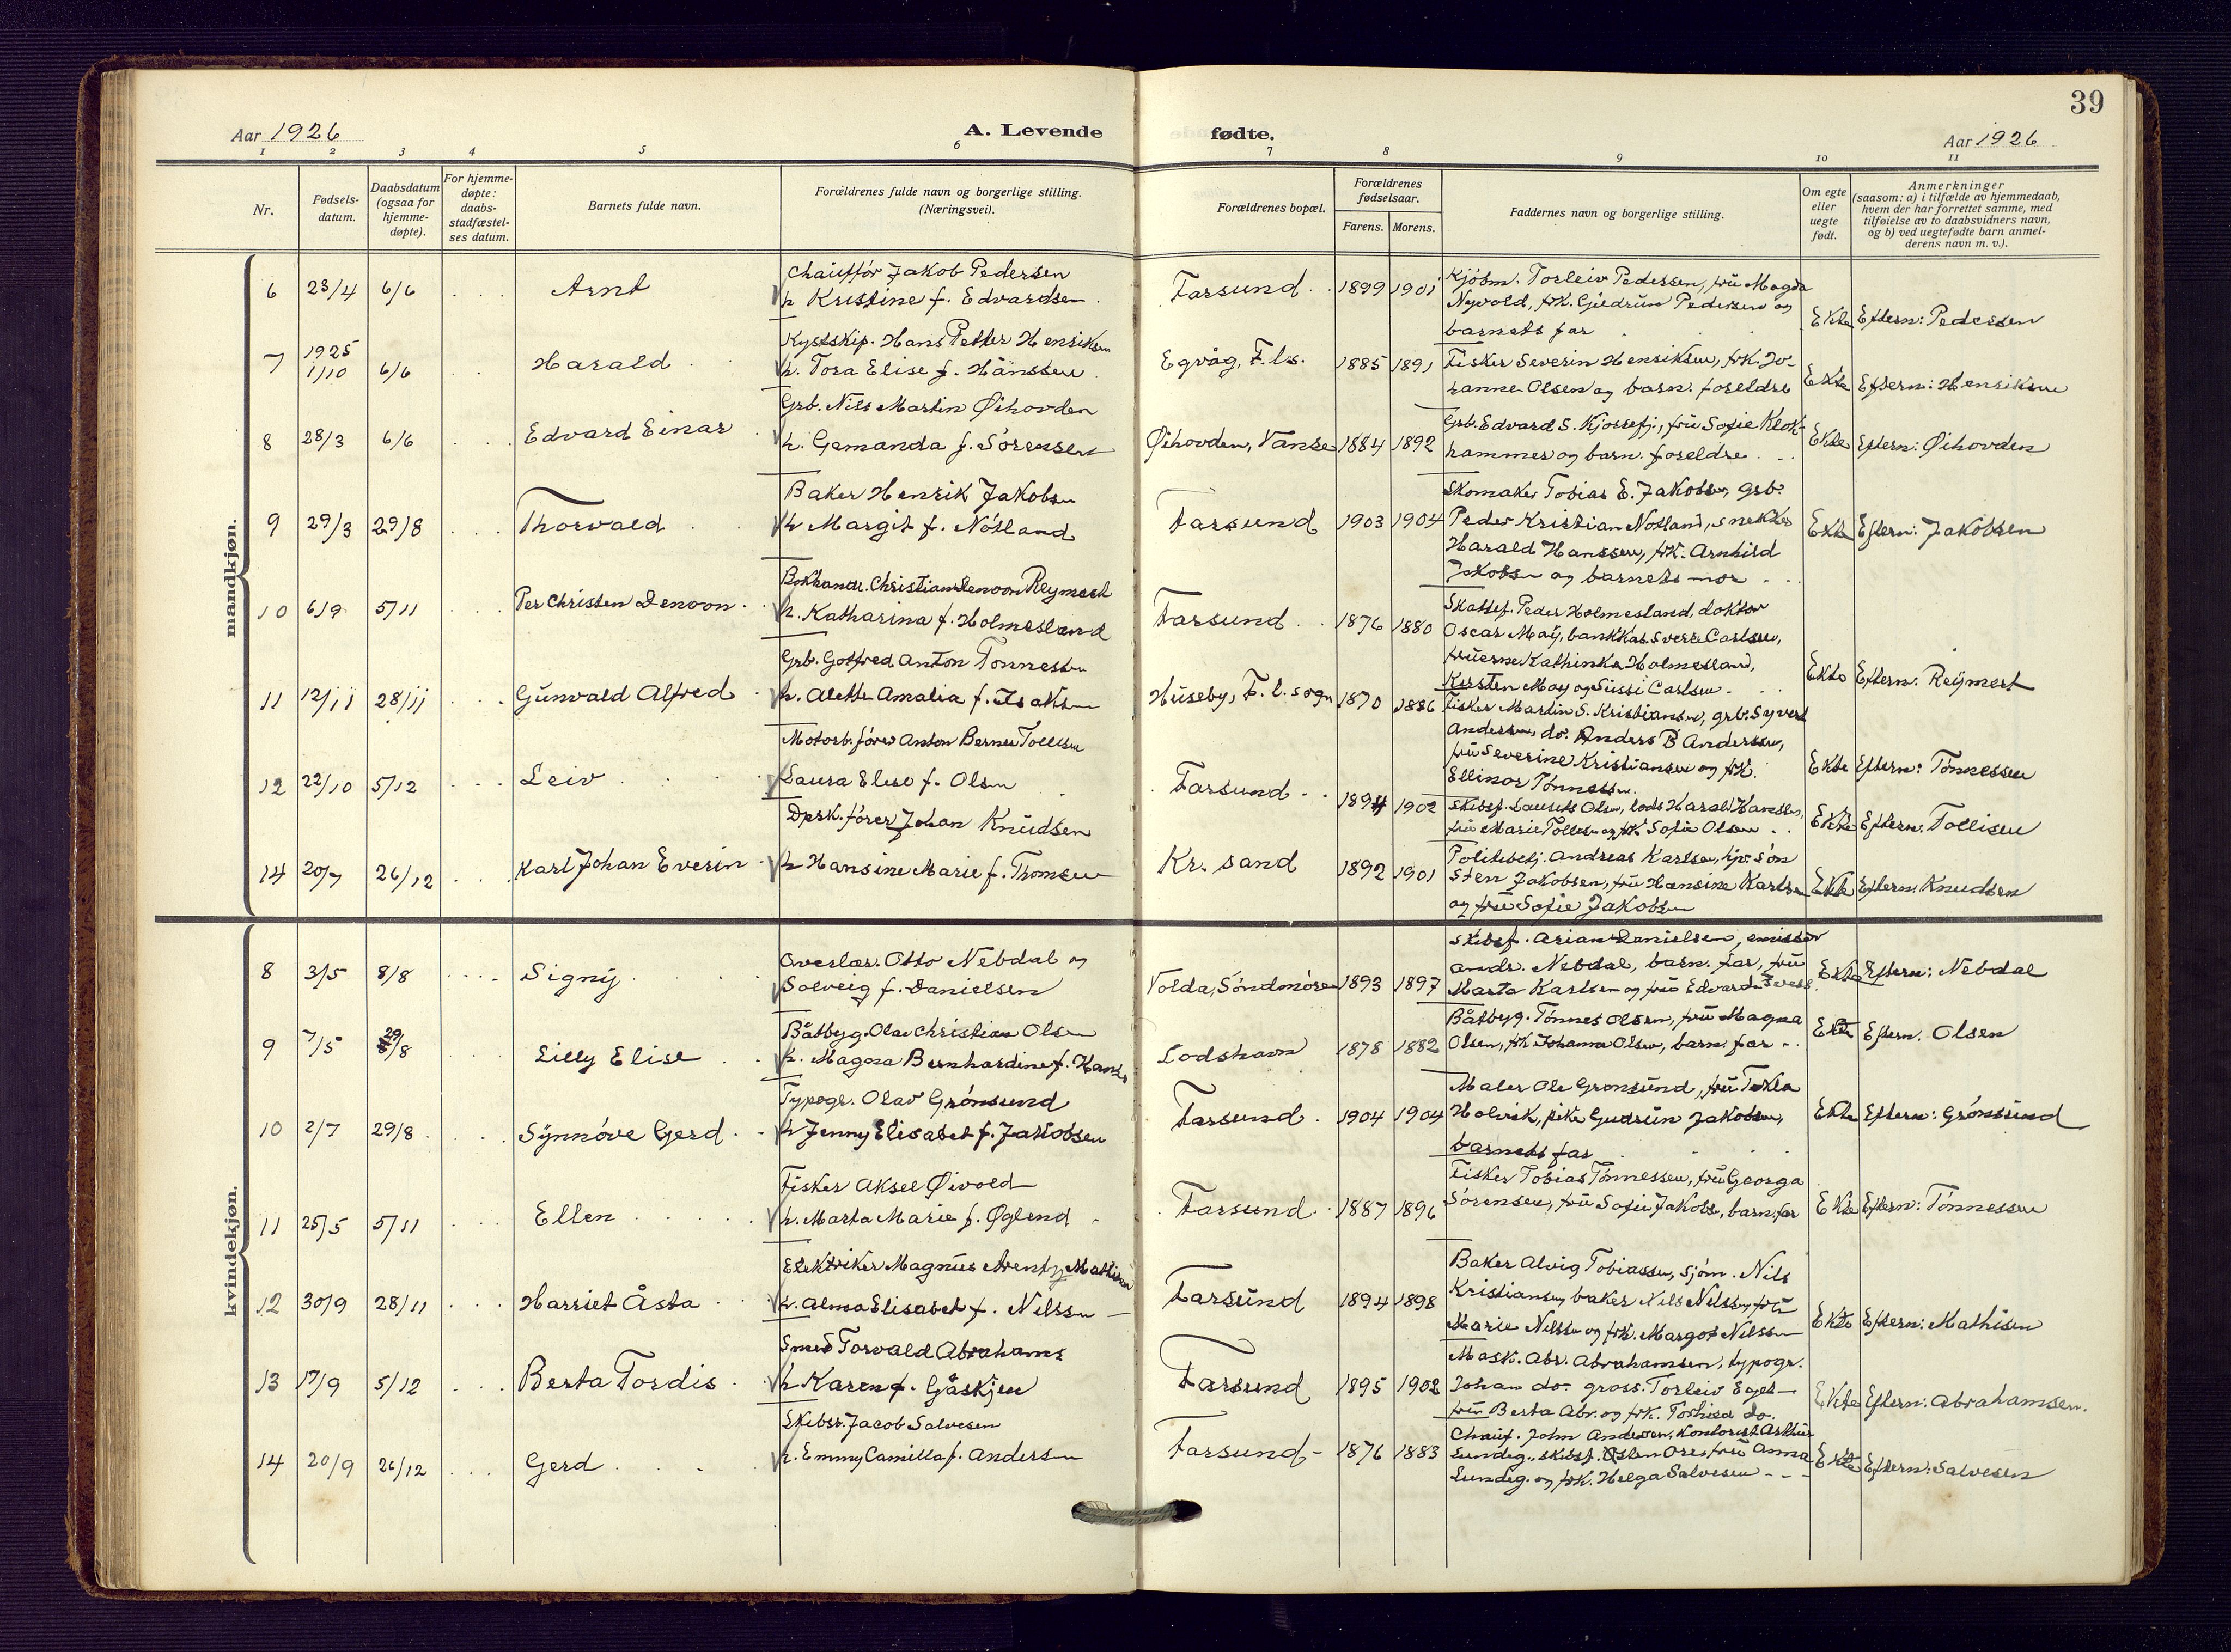 39
Aar 1926
A. Levende
fødte.
Aar 1926
1 2 3 4 5 6 7 8 9 10 11
Nr.
Fødsels-
datum.
Daabsdatum
(ogsaa for
hjemme-
døpte).
For hjemme-
døpte:
daabs-
stadfæstel-
ses datum.
Barnets fulde navn.
Forældrenes fulde navn og borgerlige stilling.
(Næringsvei).
Forældrenes bopæl.
Forældrenes
fødselsaar.
Farens. Morens.
Faddernes navn og borgerlige stilling.
Om egte
eller
uegte
født.
Anmerkninger
(saasom: a) i tilfælde av hjemmedaab,
hvem der har forrettet samme, med
tilføielse av to daabsvidners navn,
og b) ved uegtefødte barn anmel-
derens navn m. v.).
mandkjøn.
6 23/4 6/6 Arnt
Chauffør Jakob Pedersen
h Kristine f. Edvardsen
Farsund 1899 1901
Kjöbm. Torleiv Pedersen, frü Magda
Nyvold, frk. Güdrün Pedersen og
barnets far
Ekte Eftern: Pedersen
7 1925 1/10 6/6 Harald
Kystskip. Hans Petter Henriksen
h. Tora Elise f. Hanssen
Egvåg, F. ls. 1885 1891
Fisker Severin Henriksen, frk. Jo-
hanne Olsen og barn. foreldre
Ekte Eftern: Henriksen
8 28/3 6/6 Edvard Einar
Grb. Nils Martin Øihovden
h. Gemanda f. Sörensen
Øihovden, Vanse 1884 1892
Grb. Edvard S. Kjossefj., frü Sofie Klok-
hammer og barn. foreldre
Ekte Eftern: Øihovden
9 29/3 29/8 Thorvald
Baker Henrik Jakobsen
h Margit f. Nötland
Farsund 1903 1904
Skomaker Tobias E. Jakobsen, grb.
Peder Kristian Notland, snekker
Harald Hanssen, frk. Arnhild
Jakobsen og barnets mor
Ekte Eftern: Jakobsen
10 6/9 5/11 Per Christen Denoon
Bokhandl. Christian Denoon Reymert
h. Katharina f. Holmesland
Farsund 1876 1880
Skattef. Peder Holmesland, doktor
Oscar Maÿ, bankkas. Sverre Carlsen,
früerne Kathinka Holmesland,
Kirsten May og Süssi Carlsen
Ekte Eftern: Reÿmert
11 12/11 28/11 Günvald Alfred
Grb. Gotfred Anton Tönnessen
h. Alette Amalia f. Isaksen
Hüseby, F. l. sogn 1870 1886
Fisker Martin S. Kristiansen, grb. Syvert
Andersen, do. Anders B Andersen,
frü Severine Kristiansen og frk.
Ellinor Tönnessen
Ekte Eftern: Tönnessen
12 22/10 5/12 Leiv
Motorb. förer Anton Berner Tollisen
Laura Elise f. Olsen
Farsund 1894 1902
Skibsf. Laurits Olsen, lods Harald Hanssen,
frü Marie Tollisen og frk Sofie Olsen
Ekte Eftern: Tollisen
14 20/7 26/12 Karl Johan Everin
Dpsk. förer Johan Knüdsen
h Hansine Marie f. Thomsen
Kr. sand 1892 1901
Politibetj. Andreas Karlsen, hjv. Sön
Sten Jakobsen, frü Hansine Karlsen
og frü Sofie Jakobsen
Ekte Eftern: Knudsen
kvindekjøn.
8 3/5 8/8 Signÿ
Overlær. Otto Nebdal og
Solveig f. Danielsen
Volda, Söndmöre 1893 1897
Skibsf. Arian Danielsen, emissær
Andr. Nebdal, barn. far, frü
Marta Karlsen og frü Edvardin
Ekte Eftern: Nebdal
9 7/5 29/8 Lilly Elise
Båtbyg. Olav Christian Olsen
h. Magna Bernhardine f. Hans
Lodshavn 1878 1882
Båtbyg. Tönnes Olsen, frü Magna
Olsen, frk Johanna Olsen, barn. far
Ekte Eftern. Olsen
10 2/7 29/8 Sÿnnöve Gerd
Typogr. Olav Grönsund
h Jenny Elisabet f. Jakobsen
Farsund 1904 1904
Maler Ole Gronsünd, frü Tekla
Holvik, pike Gudrün Jakobsen,
barnets far
Ekte Eftern: Grönsünd
11 25/5 5/11 Ellen
Fisker Aksel Øivold
h. Marta Marie f. Øglend
Farsund 1887 1896
Fisker Tobias Tönnessen, frü Georga
Sörensen, frü Sofie Jakobs, barn. far
Ekte Eftern: Tönnessen
12 30/9 28/11 Harriet Åsta
Elektriker Magnus Arentz Mathisen
h. Alma Elisabet f. Nilssen
Farsünd 1894 1898
Baker Alvig Tobiassen, sjöm. Nils
Kristiansen, baker Nils Nilssen, frü
Marie Nilssen og frk. Margot Nilssen
Ekte Eftern: Mathisen
13 17/9 5/12 Berta Tordis
Smed Torvald Abrahams
h Karen f. Gåskjen
Farsund 1895 1902
Mask. Abr. Abrahamsen, typogr.
Johan do. gross. Torleiv Eget
frü Berta Abr. og frk. Torhild do.
Ekte Eftern: Abrahamsen.
14 20/9 26/12 Gerd
Skibsr. Jacob Salvesen
h. Emmy Camilla f. Andersen
Farsund 1876 1883
Chauf. John Andersen, kontorist Arthür
Lundeg., skibsf. Østen Ore, frü Anna
Lundeg. og frk. Helga Salvesen
Ekte Eftern: Salvesen